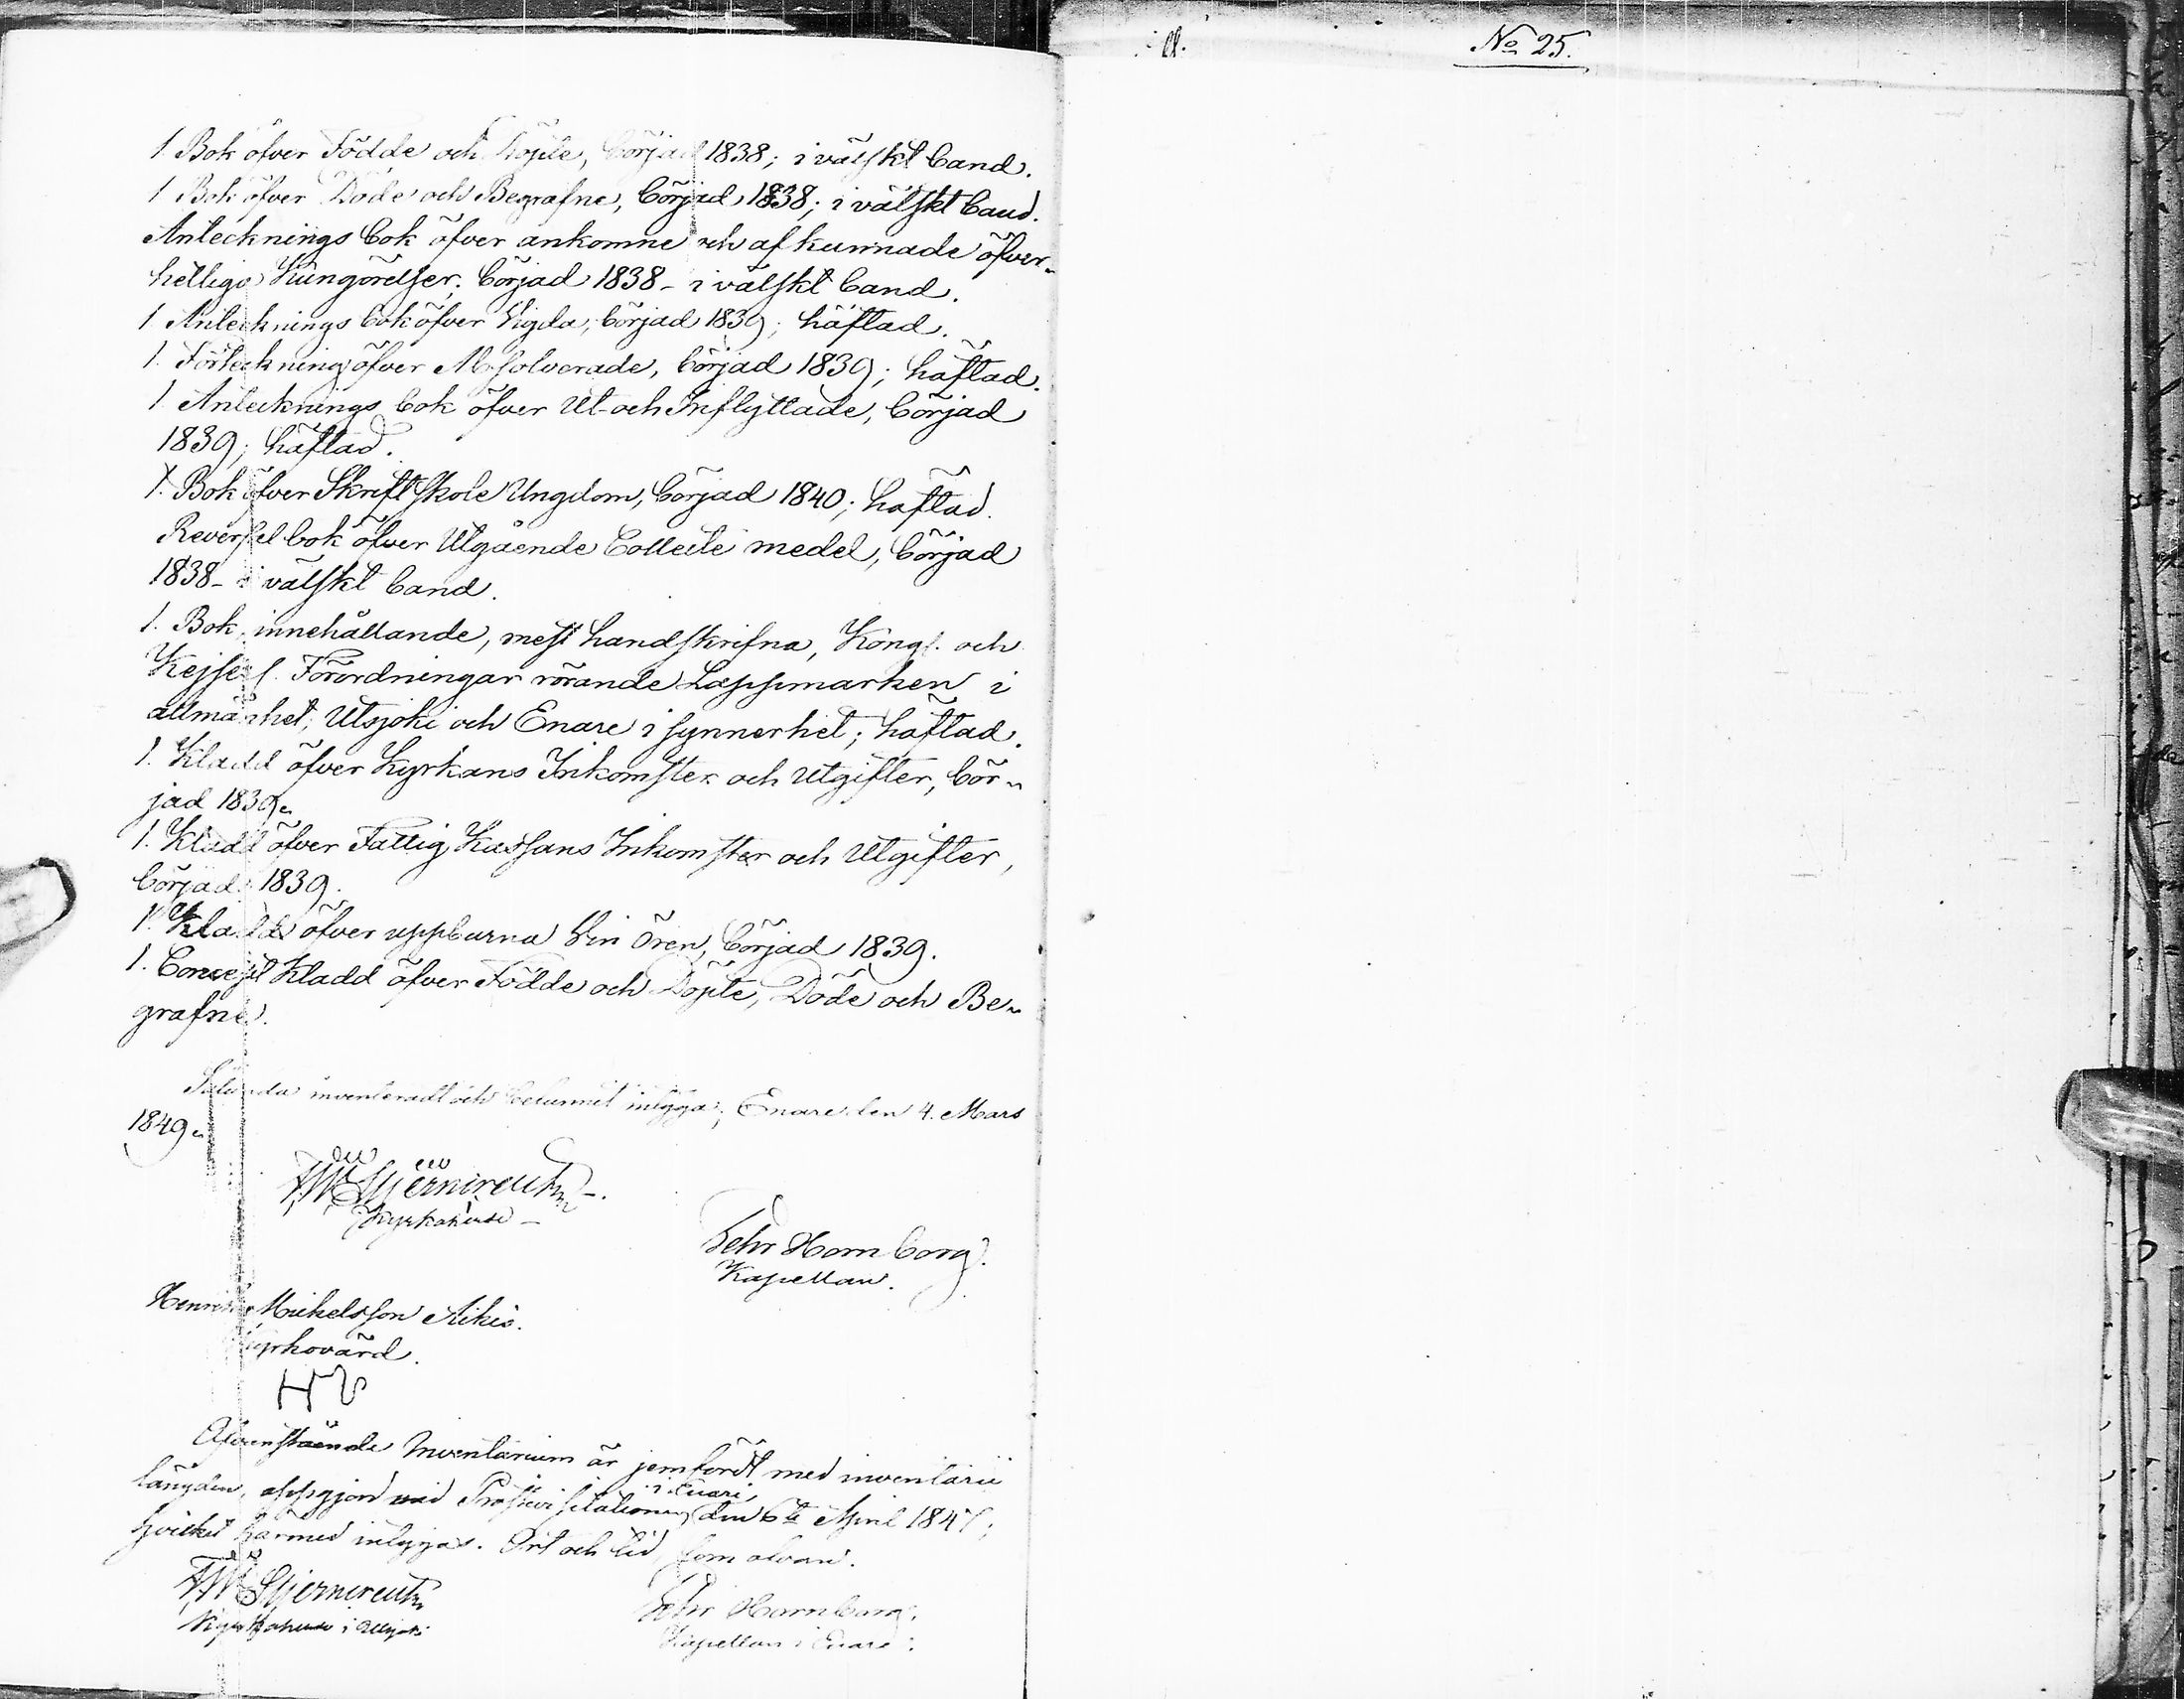 1 Bok öfver Födde och Döpte, börjad 1838; i välskt band.
1 Bok öfver Döde och Begrafne, börjad 1838; i välskt band.
Antecknings bok öfver ankomne och afkunnade öfver-
hetliga Kungörelser; börjad 1838 - i välskt band.
1 Antecknings bok öfver Vigda, börjad 1839; häftad.
1. Förteckning öfver Absolverade, börjad 1839; häftad.
1 Antecknings bok öfver Ut- och Inflyttade, börjad
1839; häftad.
1. Bok öfver Skriftskole Ungdom, börjad 1840; häftad.
Reversel bok öfver Utgående Collecte medel, börjad
1838 - i välskt band.
1. Bok, innehållande, mest handskrifna, Kongl. och
Kejserl. Förordningar rörande Lappmarken i
allmänhet, Utsjoki och Enare i synnerhet; häftad.
1. Kladd öfver Kyrkans Inkomster och Utgifter, bör-
jad 1839.
1. Kladd öfver Fattig Kassans Inkomster och Utgifter,
börjad 1839.
1. Kladd öfver uppburna Vin Ören, börjad 1839.
1. Concept Kladd öfver Födde och Döpte, Döde och Be-
grafne.
Sålunda inventeradt och befunnit intyga; Enare den 4. Mars
1849.
Stjerncreutz
Kyrkoherde
Fehr Hornborg.
Kapellan.
Henrik Michelsson Aikio.
Kyrkovärd.
Ofvanstående Inventarium är jemfördt med inventarii
längden, uppgjord vid Prostvisitationen i Enari den 6te April 1847;
hvilket härmed intygas. Ort och tid, som ofvan.
Stjerncreutz
Kyrkoherde i Utsjoki
Fehr Hornborg.
Kapellan i Enare.
No 25.